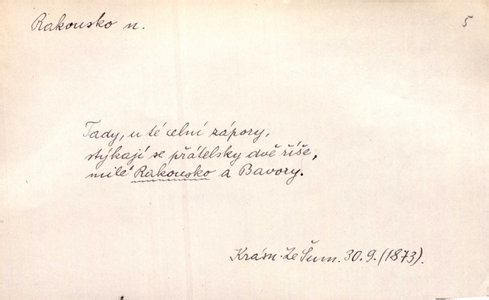 Rakousko n.
5
Tady, u té celní zápory,
stýkají se přátelsky dvě říše,
milé Rakousko a Bavory.
Krásn. Ze Šum. 30.9.(1873).